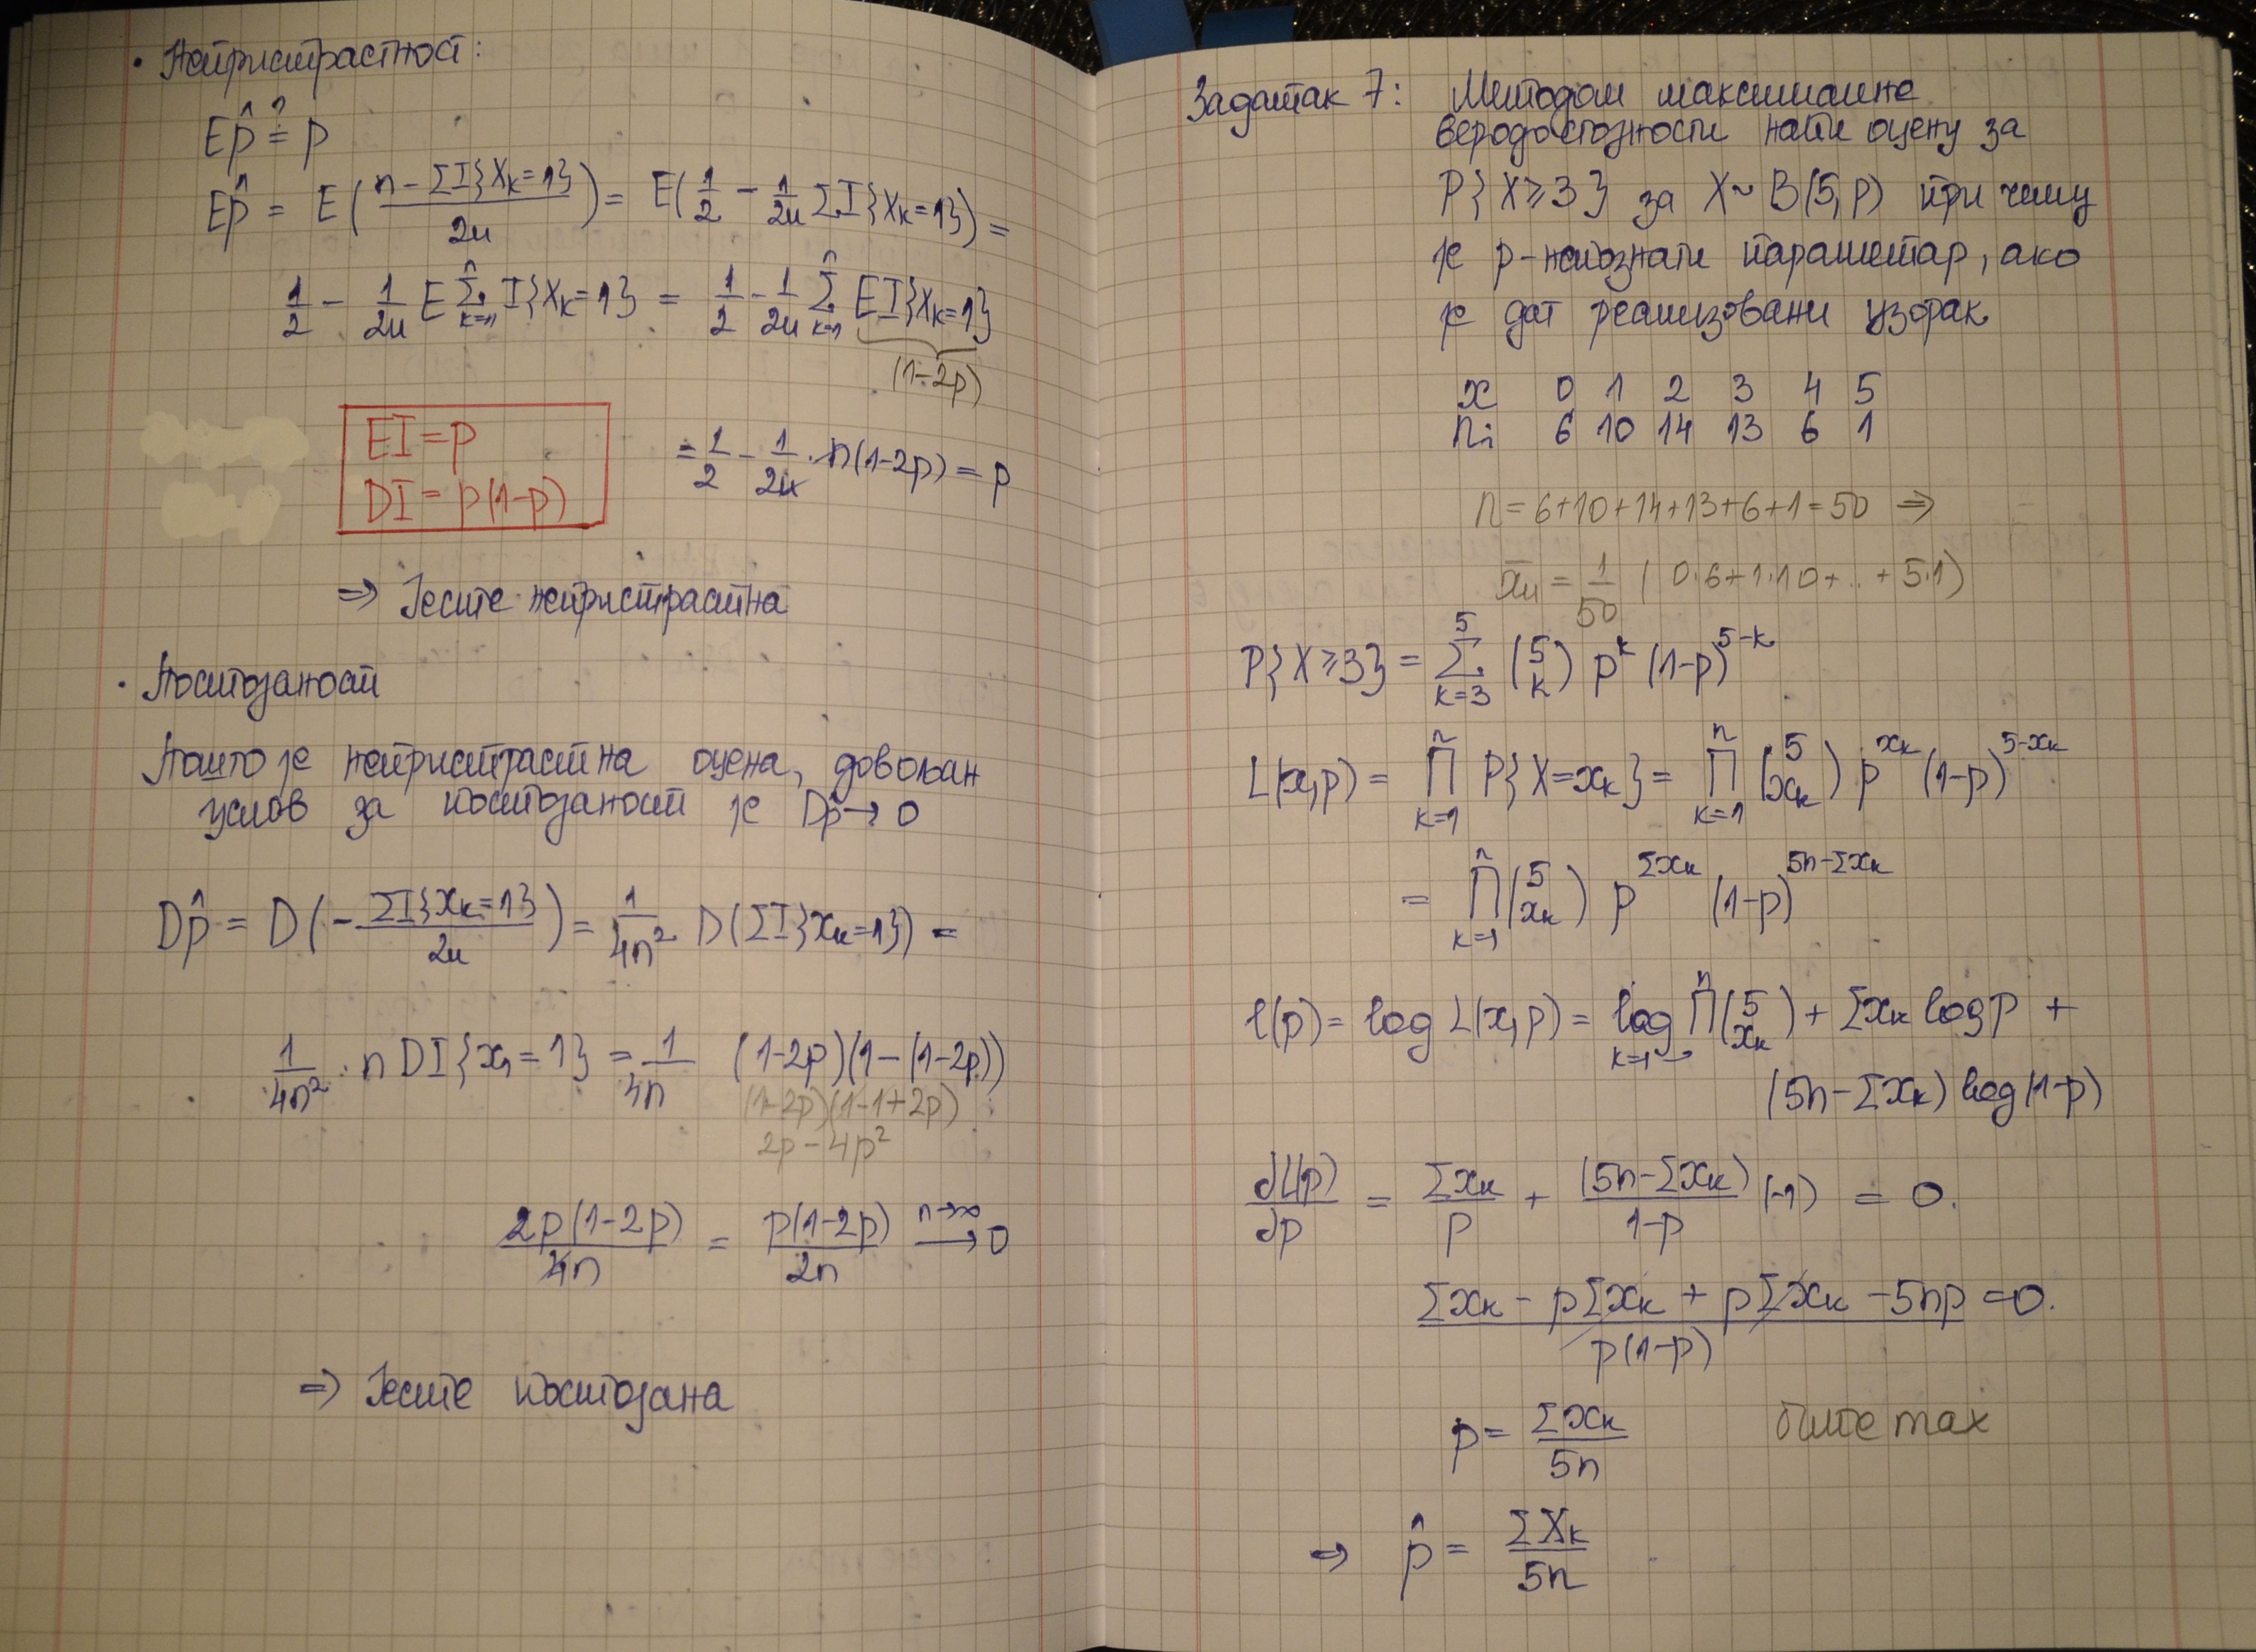 • Непристрастност:
Ep̂ ≟ p
Ep̂ = E(\frac{n - ΣI{X_k=1}}{2n}) = E(\frac{1}{2} - \frac{1}{2n} ΣI{X_k=1}) =
\frac{1}{2} - \frac{1}{2n} E \sum_{k=1}^{n} I{X_k=1} = \frac{1}{2} - \frac{1}{2n} \sum_{k=1}^{n} EI{X_k=1}
(1-2p)
EI = p
DI = p(1-p)
= \frac{1}{2} - \frac{1}{2n} · n(1-2p) = p
⇒ Јесте непристрасна
• Постојаност
Пошто је непристрастна оцена, довољан
услов за постојаност је Dp̂ → 0
Dp̂ = D(-\frac{ΣI{X_k=1}}{2n}) = \frac{1}{4n^2} D(ΣI{X_k=1}) =
\frac{1}{4n^2} · n DI{X_1=1} = \frac{1}{4n} (1-2p)(1-(1-2p))
(1-2p)(1-1+2p)
2p-4p^2
\frac{2p(1-2p)}{4n} = \frac{p(1-2p)}{2n} \xrightarrow{n→∞} 0
⇒ Јесте постојана
Задатак 7: Методом максималне
веродостојности наћи оцену за
P{X≥3} за X~B(5,p) при чему
је p-непознати параметар, ако
је дат реализовани узорак
x 0 1 2 3 4 5
n_i 6 10 14 13 6 1
n = 6+10+14+13+6+1 = 50 ⇒
x̄_n = \frac{1}{50} (0·6+1·10+..+5·1)
P{X≥3} = \sum_{k=3}^{5} \binom{5}{k} p^k (1-p)^{5-k}
L(x,p) = \prod_{k=1}^{n} P{X=x_k} = \prod_{k=1}^{n} \binom{5}{x_k} p^{x_k} (1-p)^{5-x_k}
= \prod_{k=1}^{n} \binom{5}{x_k} p^{Σx_k} (1-p)^{5n-Σx_k}
l(p) = log L(x,p) = log \prod_{k=1}^{n} \binom{5}{x_k} + Σx_k log p +
(5n-Σx_k) log(1-p)
\frac{∂l(p)}{∂p} = \frac{Σx_k}{p} + \frac{(5n-Σx_k)}{1-p} (-1) = 0.
\frac{Σx_k - pΣx_k + pΣx_k - 5np}{p(1-p)} = 0.
p = \frac{Σx_k}{5n} max
⇒ p̂ = \frac{ΣX_k}{5n}